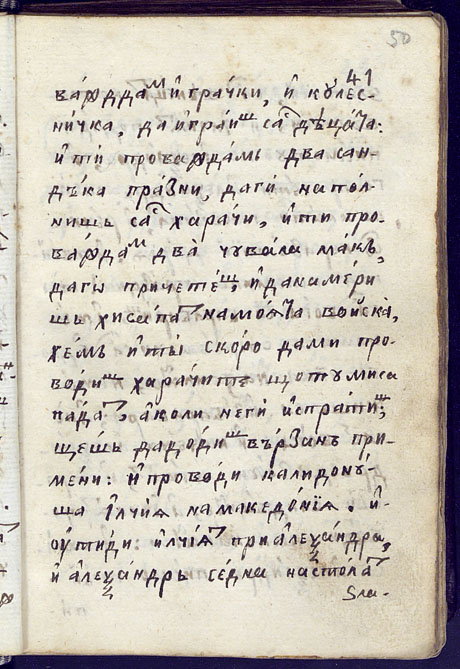 50
41
ва́ждаᲇм и҆грачки, и҆ коле́с-
ни́чка, да и҆гра́иш са̑ деца́та:
и҆ ти прова́ждамь два сан-
дъ́ка пра́зни, да ги напо́л-
нишь са̑ хара́чи, и҆ ти про-
ва́ждам два̀ чува́ла ма́къ,
да го приче́теш, и҆ да наме́ри
шь хиса́пат на моѧ́та войска̀,
хе́мь и҆ ты̀ ско́ро да ми про-
во́диш хара́чите що ти миса
па́дат, а҆ коли не ги̑ и҆спра́тиш,
щешь да до́диш въ́рзанъ при
ме́ни: и҆ прово́ди калидону́-
ша і҆лчиѧ̀ на македо́нїѧ. и҆
ѻу҆ти́ди: и҆лчі́ѧт при а҆леѯа́ндра,
и҆ а҆леѯа́ндрь се́дна на сто́лат
зла-